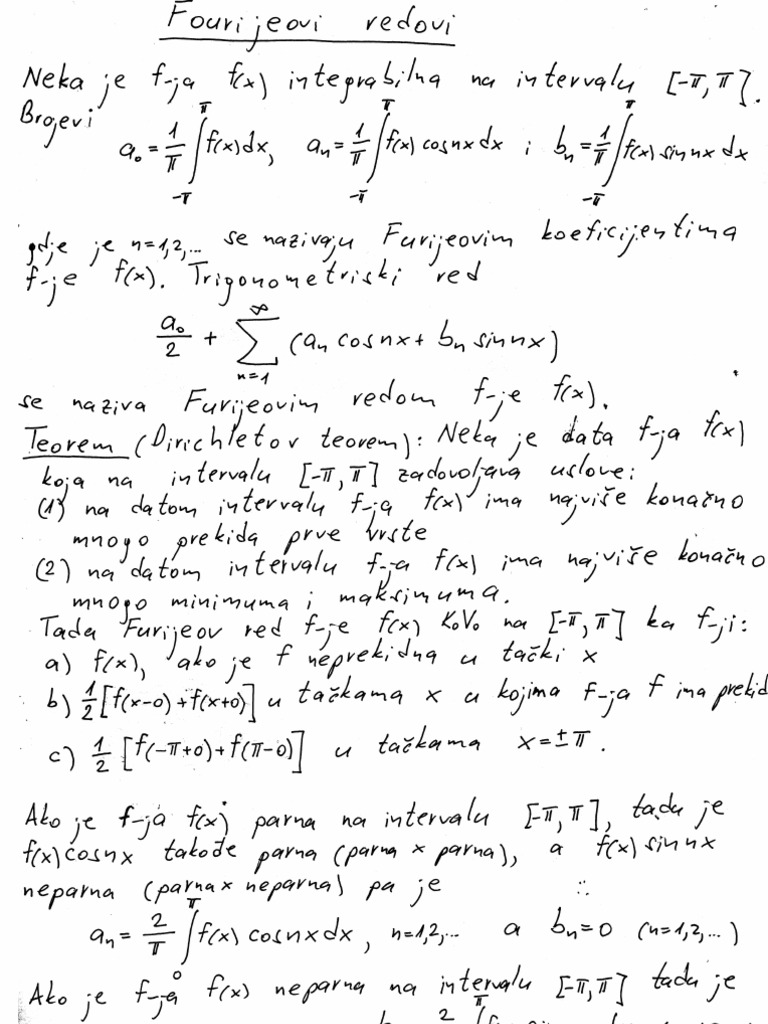 Fourijeovi redovi
Neka je f-ja f(x) integrabilna na intervalu [-π, π].
Brojevi
a₀ = 1/π ∫_{-π}^{π} f(x)dx, aₙ = 1/π ∫_{-π}^{π} f(x) cosnx dx i bₙ = 1/π ∫_{-π}^{π} f(x) sinnx dx
gdje je n=1,2,... se nazivaju Furijeovim koeficijentima
f-je f(x). Trigonometriski red
a₀/2 + ∑_{n=1}^{∞} (aₙ cosnx + bₙ sinnx)
se naziva Furijeovim redom f-je f(x).
Teorem (Dirichletov teorem): Neka je data f-ja f(x)
koja na intervalu [-π, π] zadovoljava uslove:
(1) na datom intervalu f-ja f(x) ima najviše konačno
mnogo prekida prve vrste
(2) na datom intervalu f-ja f(x) ima najviše konačno
mnogo minimuma i maksimuma.
Tada Furijeov red f-je f(x) KoVo na [-π, π] ka f-ji:
a) f(x), ako je f neprekidna u tački x
b) 1/2 [f(x-0)+f(x+0)] u tačkama x u kojima f-ja f ima prekid
c) 1/2 [f(-π+0)+f(π-0)] u tačkama x=±π.
Ako je f-ja f(x) parna na intervalu [-π, π], tada je
f(x)cosnx takođe parna (parna × parna), a f(x) sinnx
neparna (parna× neparna) pa je
aₙ = 2/π ∫_{0}^{π} f(x) cosnx dx, n=1,2,... a bₙ=0 (n=1,2,...)
Ako je f-ja f(x) neparna na intervalu [-π, π] tada je